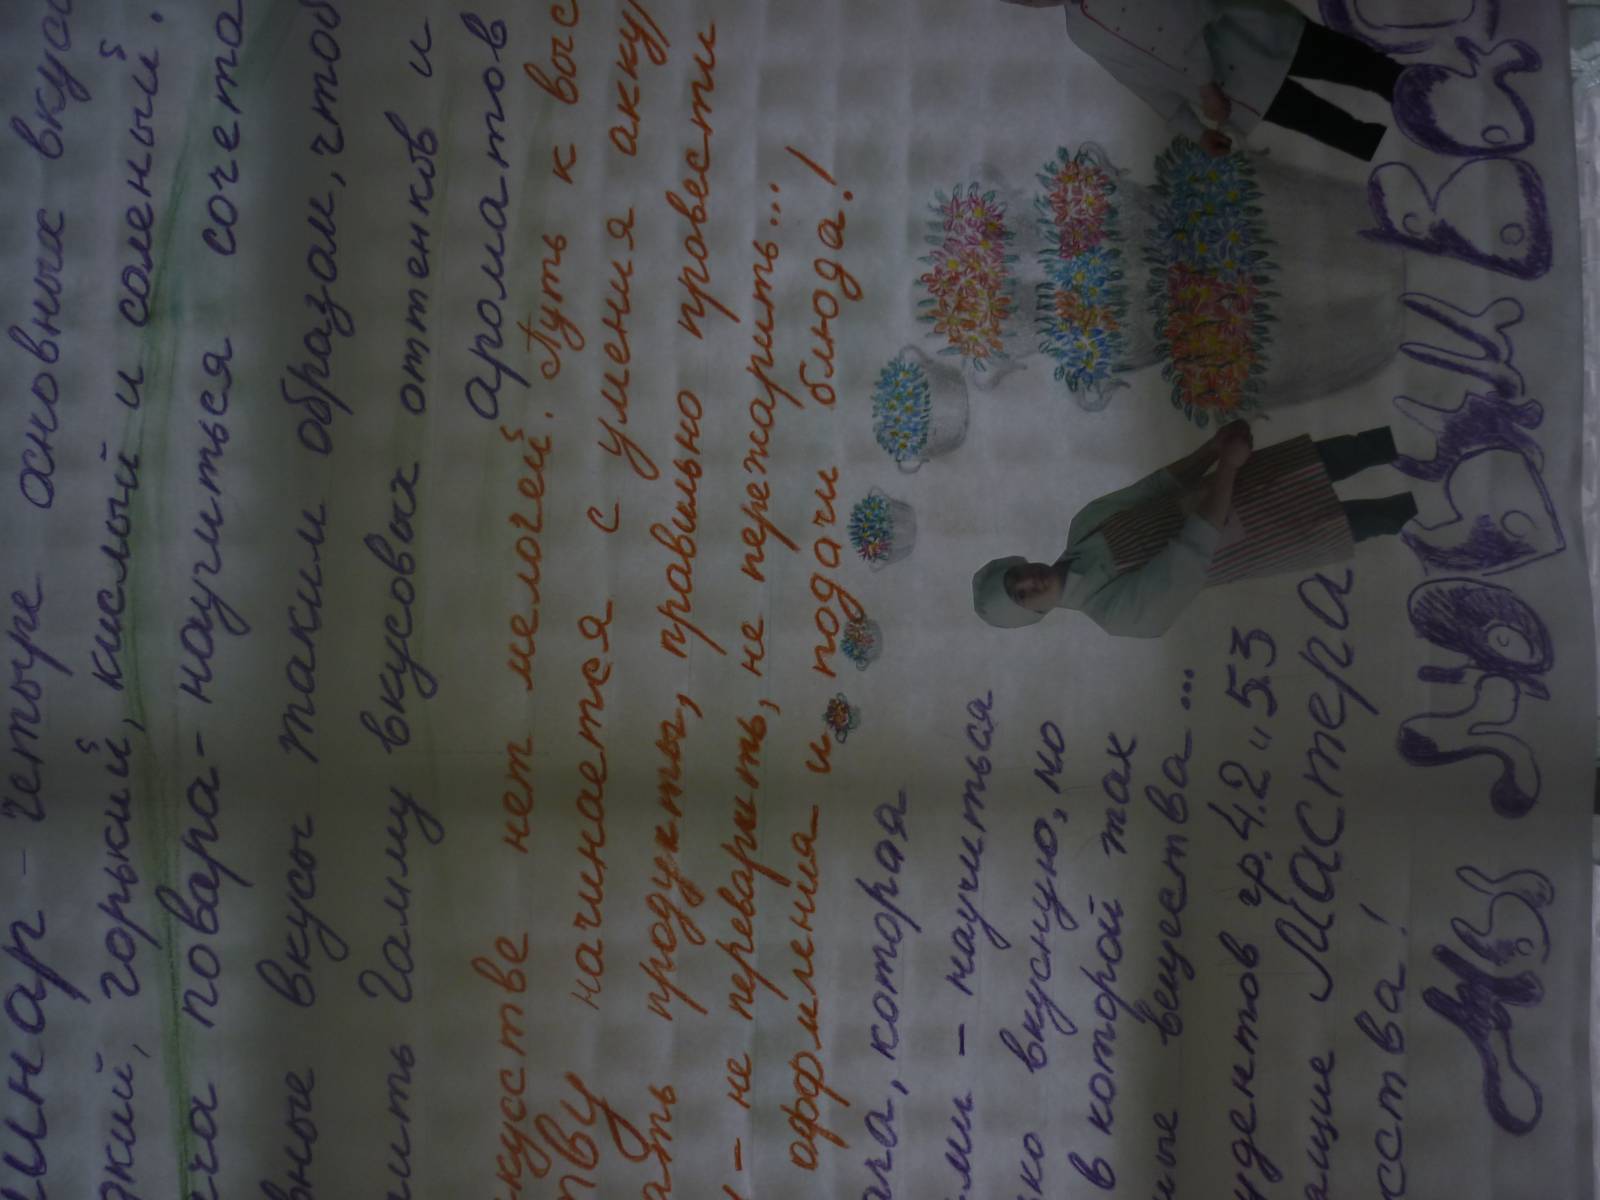 инар - четыре основных вкуса
дкий, горький, кислый и соленый.
ча повара - научиться сочета
вные вкусы таким образом, чтоб
ить гамму вкусовых оттенков и
ароматов
кусстве нет мелочей. Путь к выс
тву начинается с умения акку
ать продукты, правильно провести
- не переварить, не пережарить...
оформления и подачи блюда!
ача, которая
ми - научиться
ко вкусную, но
в которой так
ные вещества...
удентов гр. 4.2 и 5.3
ащие Мастера
сства!